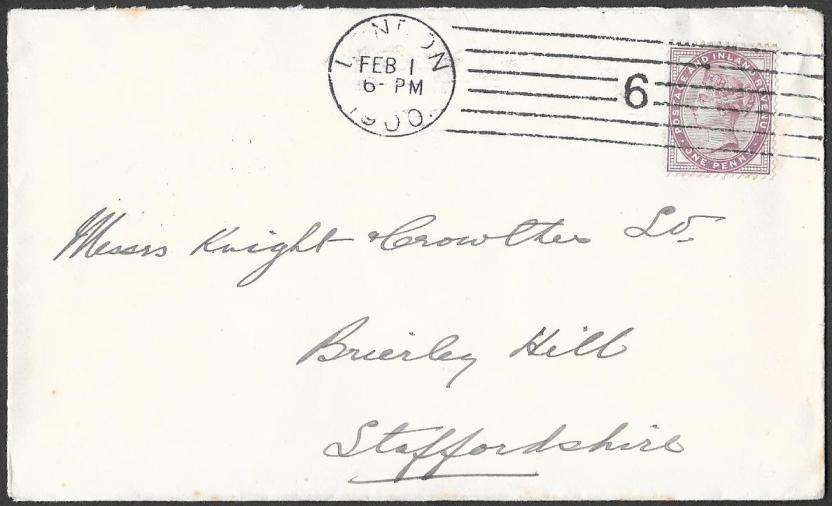 LONDON
FEB 1
6- PM
1900
6
POSTAGE AND INLAND REVENUE
ONE PENNY
Messrs Knight & Crowther Ld.
Brierley Hill
Staffordshire